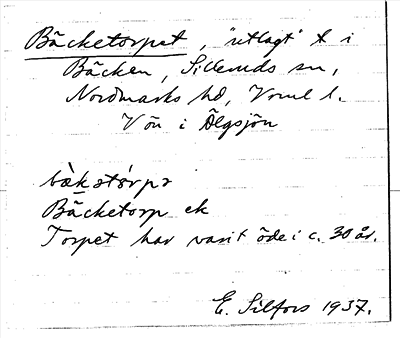 Bäcketorpet, "utlagt" t i
Bäcken, Silleruds sn,
Nordmarks hd, Vrml l.
V om i Älgsjön
bæ̀kətår̀pə
Bäcketorp ek
Torpet har varit öde i c. 30 år.
E. Silfors 1937.